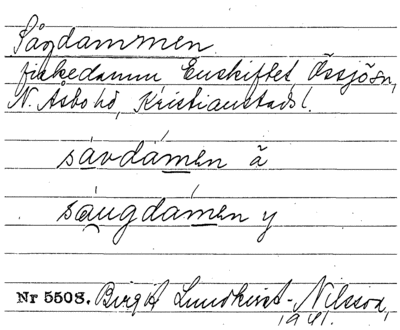 Sågdammen
fiskedamm, Enskiftet, Össjö sn,
N. Åsbo hd, Kristianstads l.
såvdámen ã
sáugdámen y
Nr 5508. Birgit Lundkvist-Nilsson,
1941.